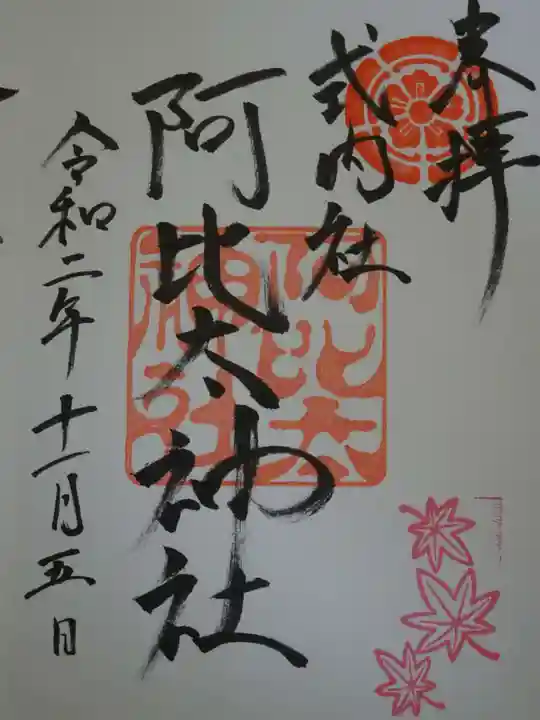 奉拝
式内社
阿比太神社
阿比太
神社
令和二年十一月五日